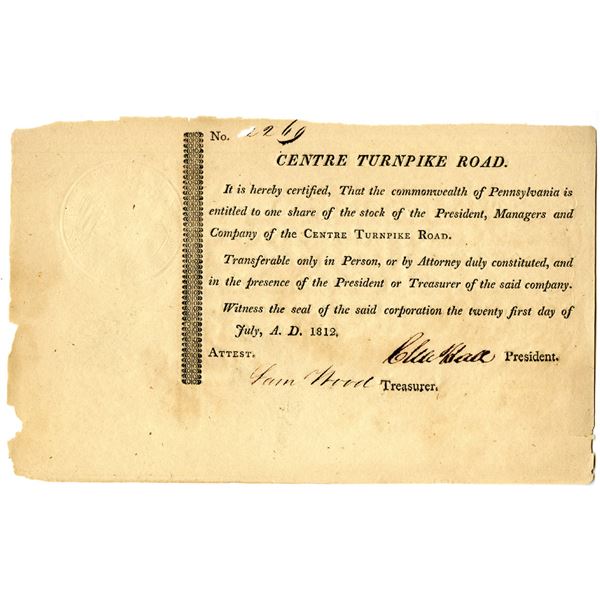 No. 2269
CENTRE TURNPIKE ROAD.
It is hereby certified, That the commonwealth of Pennsylvania is
entitled to one share of the stock of the President, Managers and
Company of the CENTRE TURNPIKE ROAD.
Transferable only in Person, or by Attorney duly constituted, and
in the presence of the President or Treasurer of the said company.
Witness the seal of the said corporation the twenty first day of
July, A. D. 1812.
ATTEST. President.
Sam Wood Treasurer.